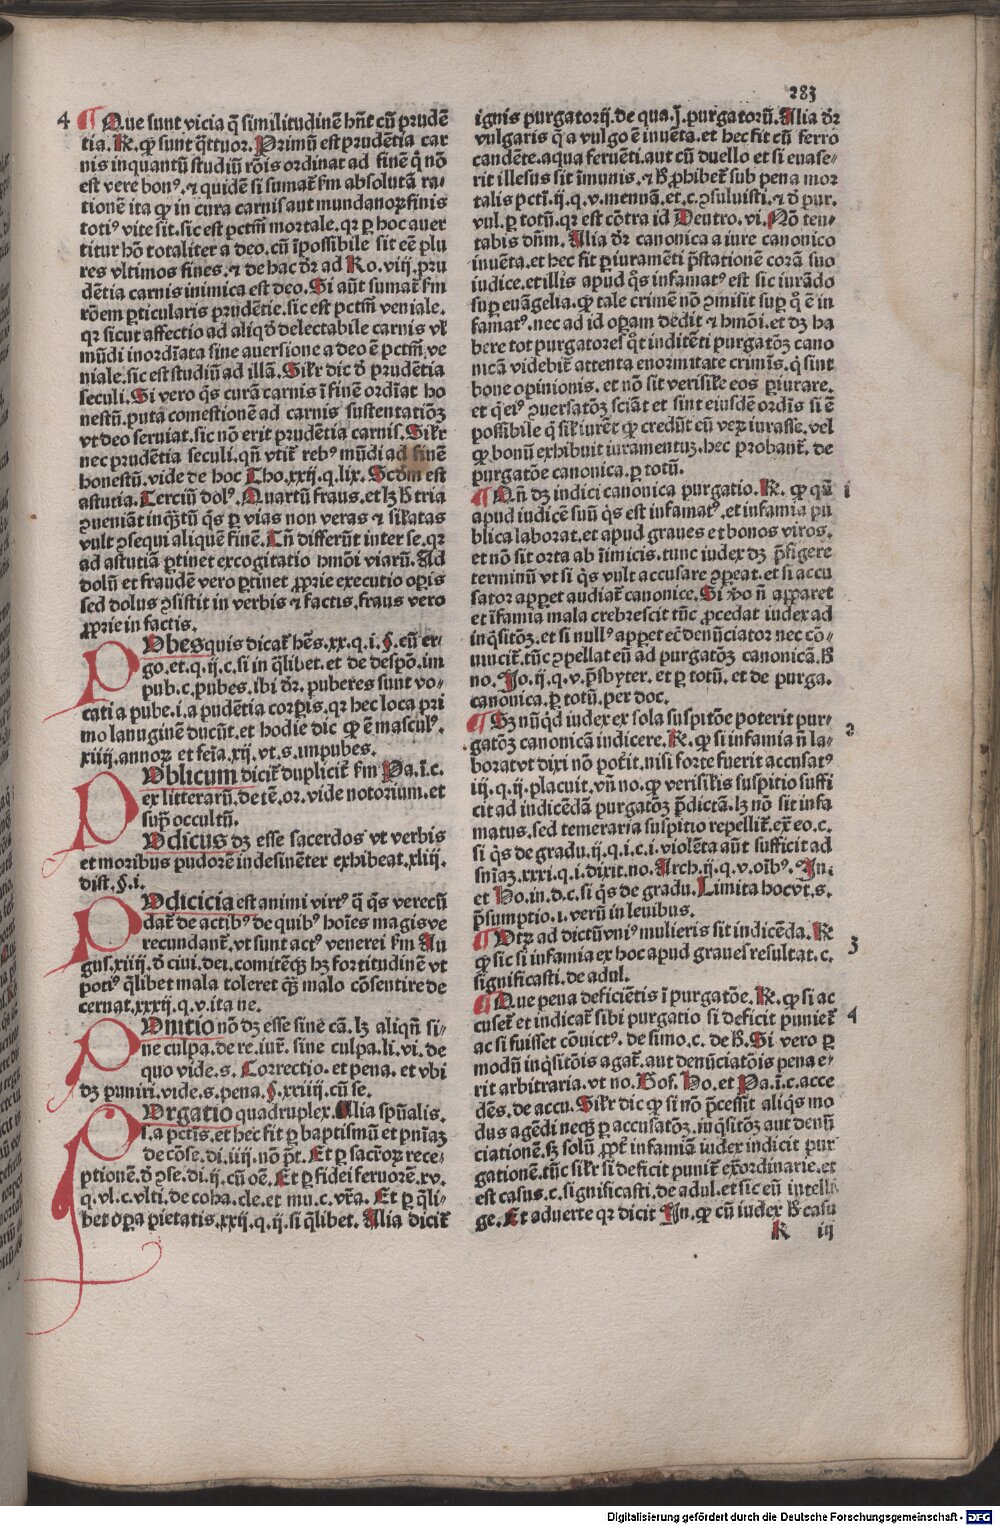 283
4 ¶ Que sunt vicia q̃ similitudinẽ hñt cũ prudẽ
tia. R. ꝙ sunt q̃ttuor. Primũ est prudẽtia car
nis inquantũ studiũ rõis ordinat ad finẽ q̃ nõ
est vere bonꝰ. ⁊ quidẽ si sumat᷑ ẜm absolutã ra⸗
tionẽ ita ꝙ in cura carnis aut mundanoꝝ finis
totiꝰ vite sit. sic est pctm̃ mortale. qꝛ ꝑ hoc auer
titur hõ totaliter a deo. cũ ĩpossibile sit eẽ plu
res vltimos fines. ⁊ de hac dr̃ ad Ro. viij. pru
dẽtia carnis inimica est deo. Si aũt sumat᷑ ẜm
rõem ꝑticularis prudẽtie. sic est pctm̃ veniale.
qꝛ sicut affectio ad aliqd̃ delectabile carnis vl᷑
mũdi inordĩata sine auersione a deo ẽ pctm̃ ve
niale. sic est studiũ ad illã. Silr̃ dic d̃ prudẽtia
seculi. Si vero q̃s curã carnis ĩ finẽ ordĩat ho
nestũ. puta comestionẽ ad carnis sustentatiõꝫ
vt deo seruiat. sic nõ erit prudẽtia carnis. Silr̃
nec prudẽtia seculi. qñ vtit᷑ rebꝰ mũdi ad finẽ
honestũ. vide de hoc Tho. xxij. q. lix. Scd̃m est
astutia. Terciũ dolꝰ. Quartũ fraus. et lꝫ h̃ tria
ꝯueniãt inq̃ꝫtũ q̃s ꝑ vias non veras ⁊ sil᷑atas
vult ꝯsequi aliquẽ finẽ. Tñ differũt inter se. qꝛ
ad astutiã ꝑtinet excogitatio hm̃oi viarũ. Ad
dolũ et fraudẽ vero ꝑtinet ꝓprie executio oꝑis
sed dolus ꝯsistit in verbis ⁊ factis. fraus vero
ꝓprie in factis.
PUbes quis dicat᷑ hẽs. xx. q. i. §. cũ er⸗
go. et. q. ij. c. si in q̃libet. et de despõ. im
pub. c. pubes. ibi dr̃. puberes sunt vo⸗
cati a pube. i. a pudẽtia corꝑis. qꝛ hec loca pri
mo lanuginẽ ducũt. et hodie dic ꝙ ẽ masculꝰ.
xiiij. annoꝝ et feĩa. xij. vt. s. impubes.
PUblicum dicit᷑ duplicit᷑ ẜm Pa. ĩ. c.
ex litterarũ. de tẽ. or. vide notorium. et
sup̃ occultũ.
PUdicus dꝫ esse sacerdos vt verbis
et moribus pudorẽ indesinẽter exhibeat. xliij.
dist. §. i.
PUdicicia est animi virtꝰ q̃ q̃s verecũ
dat᷑ de actibꝰ de quibꝰ hoĩes magis ve
recundant᷑. vt sunt actꝰ venerei ẜm Au
gus. xiiij. d̃ ciui. dei. comitẽqꝫ hꝫ fortitudinẽ vt
potiꝰ q̃libet mala toleret q̃ꝫ malo cõsentire de
cernat. xxxij. q. v. ita ne.
PUnitio nõ dꝫ esse sine cã. lꝫ aliqñ si⸗
ne culpa. de re. iur᷑. sine culpa. li. vi. de
quo vide. s. Correctio. et pena. et vbi
dꝫ puniri. vide. s. pena. §. xxiiij. cũ se.
PUrgatio quadruplex. Alia spũalis.
s. a pctĩs. et hec fit ꝑ baptismũ et pniaꝫ
de cõse. di. iiij. nõ p̃t. Et ꝑ sacroꝝ rece⸗
ptionẽ. d̃ ꝯse. di. ij. cũ oẽ. Et ꝑ fidei feruorẽ. xv.
q. vl. c. vlti. de coha. cle. et mu. c. vr̃a. Et ꝑ q̃li⸗
bet oꝑa pietatis. xxij. q. ij. si q̃libet. Alia dicit᷑
ignis purgatorij. de qua. j. purgatorũ. Alia dr̃
vulgaris q̃ a vulgo ẽ inuẽta. et hec fit cũ ferro
candẽte. aqua feruẽti. aut cũ duello et si euase⸗
rit illesus sit ĩmunis. ⁊ h̃ ꝓhibet᷑ sub pena mor
talis pcti. ij. q. v. mennã. et. c. ꝯsuluisti. ⁊ d̃ pur.
vul. ꝑ totũ. qꝛ est cõtra id Deutro. vi. Nõ ten⸗
tabis dñm. Alia dr̃ canonica a iure canonico
inuẽta. et hec fit ꝑ iuramẽti p̃stationẽ corã suo
iudice. et illis apud q̃s infamatꝰ est sic iurãdo
suꝑ euãgelia. ꝙ tale crimẽ nõ ꝯmisit suꝑ q̃ ẽ in
famatꝰ. nec ad id oꝑam dedit ⁊ hm̃oi. et dꝫ ha
bere tot purgatores q̃t inditẽti purgatõꝫ cano
nicã videbit᷑ attenta enormitate crimĩs. q̃ sint
bone opinionis. et nõ sit verisile eos ꝑiurare.
et q̃ eiꝰ ꝯuersatõꝫ sciãt et sint eiusdẽ ordĩs si ẽ
possibile q̃ sil᷑ iurẽt ꝙ credũt eũ veꝝ iurasse. vel
ꝙ bonũ exhibuit iuramentuꝫ. hec probant᷑. de
purgatõe canonica. ꝑ totũ.
¶ Qñ dꝫ indici canonica purgatio. R. ꝙ qñ 1
apud iudicẽ suũ q̃s est infamatꝰ. et infamia pu
blica laborat. et apud graues et bonos viros.
et nõ sit orta ab ĩimicis. tunc iudex dꝫ p̃figere
terminũ vt si q̃s vult accusare ꝯpeat. et si accu
sator apꝑet audiat᷑ canonice. Si ṽo ñ apparet
et ĩfamia mala crebrescit tũc ꝓcedat iudex ad
inq̃sitõꝫ. et si nullꝰ apꝑet eciã denũciator nec cõ⸗
uincit᷑. tũc ꝯpellat eũ ad purgatõꝫ canonicã. h̃
no. Jo. ij. q. v. p̃sbyter. et ꝑ totũ. et de purga.
canonica. ꝑ totũ. per doc.
¶ Sꝫ nũqd̃ iudex ex sola suspitõe poterit pur⸗ 2
gatõꝫ canonicã indicere. R. ꝙ si infamia ñ la⸗
borat vt dixi nõ pot̃it. nisi forte fuerit accusatꝰ
iij. q. ij. placuit. vñ no. ꝙ verisilis suspitio suffi
cit ad indicẽdã purgatõꝫ p̃dictã. lꝫ nõ sit infa
matus. sed temeraria suspitio repellit᷑. ex̃ eo. c.
si q̃s de gradu. ij. q. i. c. i. violẽta aũt sufficit ad
sniãꝫ. xxxi. q. i. dixit. no. Arch. ij. q. v. oĩbꝰ. In.
et Ho. in. d. c. si q̃s de gradu. Limita hoc vt. s.
p̃sumptio. i. verũ in leuibus.
¶ Utꝝ ad dictũ vniꝰ mulieris sit indicẽda. R 3
ꝙ sic si infamia ex hoc apud graues resultat. c.
significasti. de adul.
¶ Que pena deficiẽtis ĩ purgatõe. R. ꝙ si ac 4
cuset᷑ et indicat᷑ sibi purgatio si deficit puniet᷑
ac si fuisset cõuictꝰ. de simo. c. de h̃. Si vero ꝑ
modũ inq̃sitõis agat᷑. aut denũciatõis pena e⸗
rit arbitraria. vt no. Gof. Ho. et Pa. ĩ. c. acce
dẽs. de accu. Silr̃ dic ꝙ si nõ p̃cessit aliq̃s mo
dus agẽdi necꝙ ꝑ accusatõꝫ. inq̃sitõꝫ aut denũ
ciationẽ. sꝫ solũ ꝓpt᷑ infamiã iudex indicit pur
gationẽ. tũc silr̃ si deficit punit᷑ ex̃ordinarie. et
est casus. c. significasti. de adul. et sic eũ intelli
ge. Et aduerte qꝛ dicit In. ꝙ cũ iudex h̃ casu
R iij
Digitalisierung gefördert durch die Deutsche Forschungsgemeinschaft - DFG